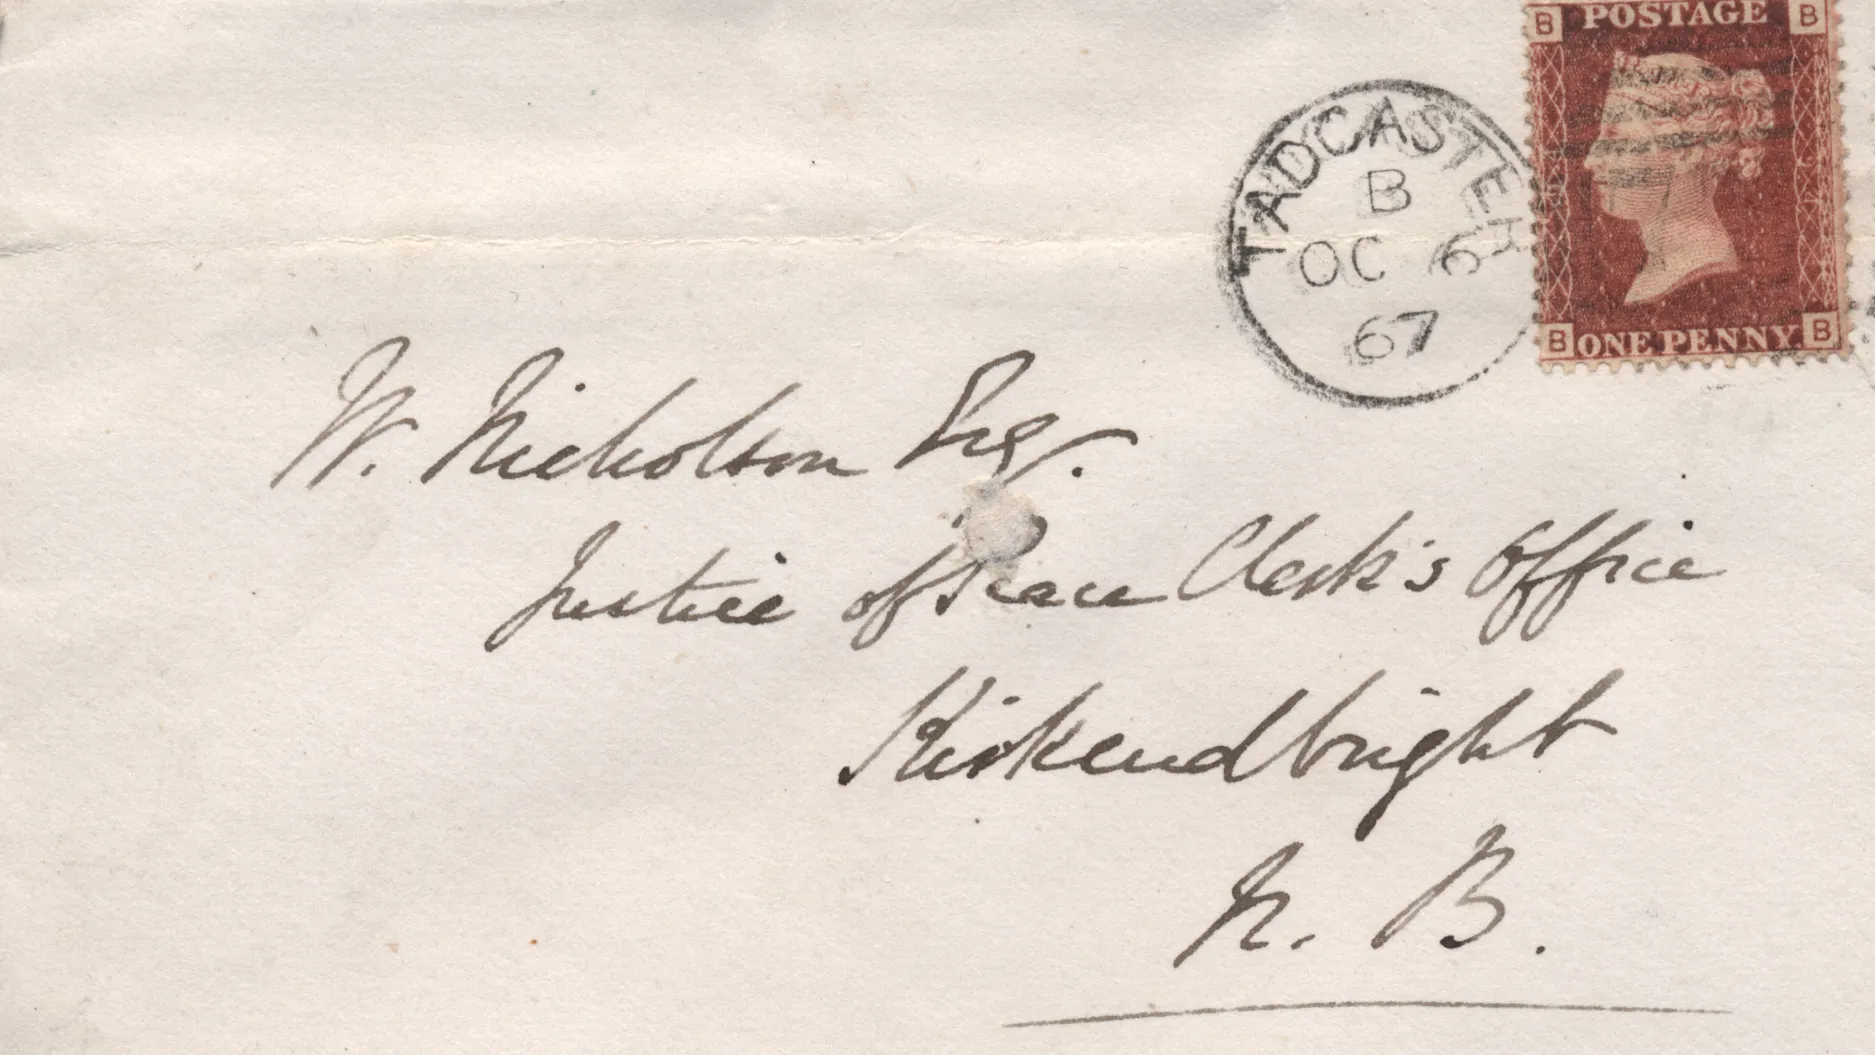 B POSTAGE B
TADCASTER
B
OC 6
67
B ONE PENNY B
W. Nicholson Esq.
Justice of Peace Clerk's Office
Kirkcudbright
N. B.